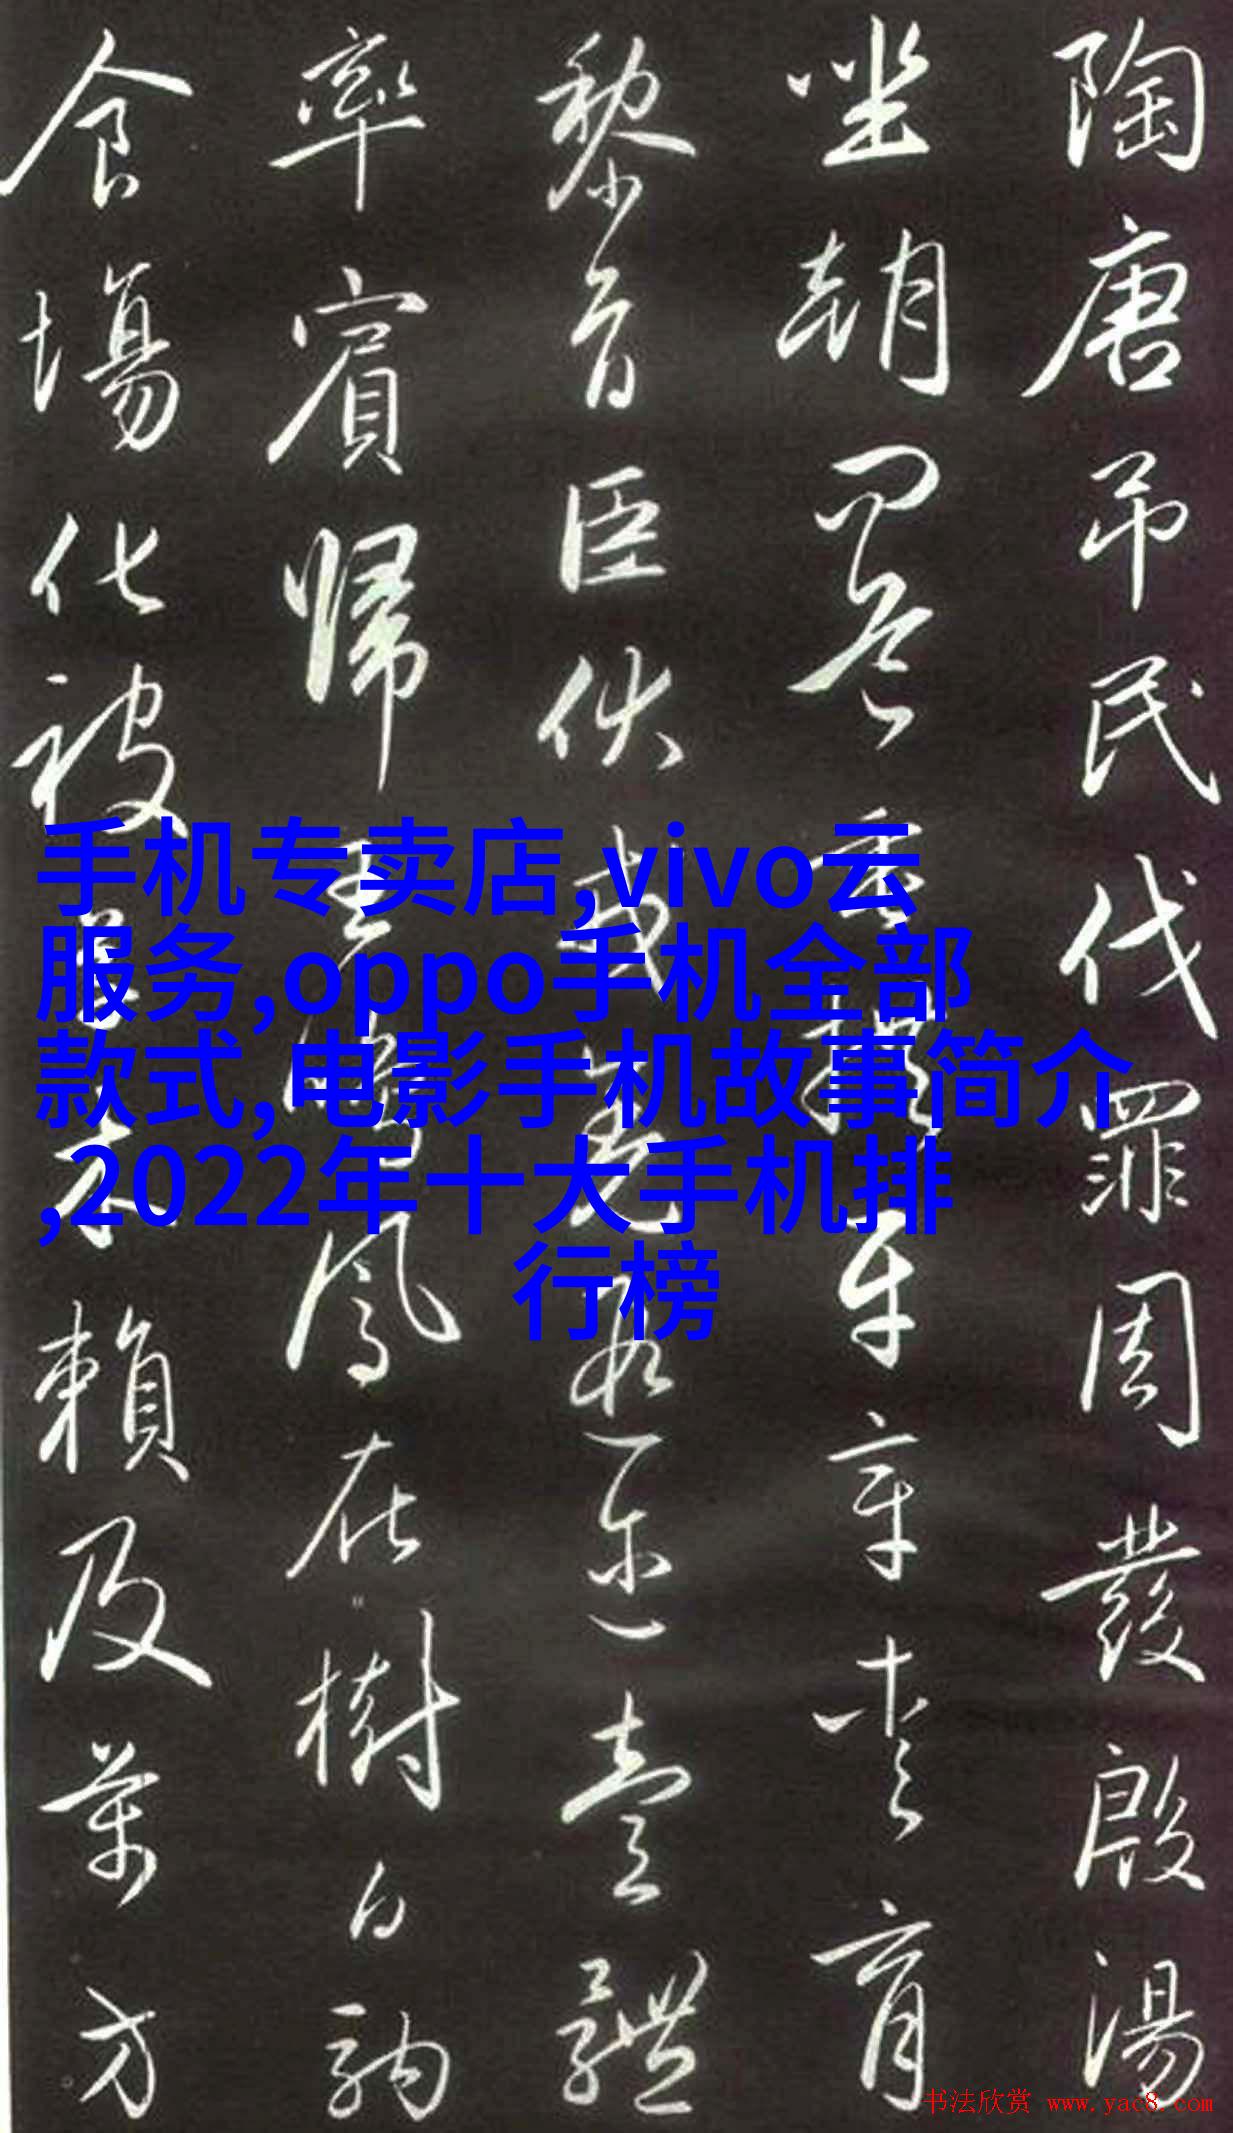 陶唐吊民伐罪周發殷湯
坐朝問道垂拱平章愛育
黎首臣伏戎羌遐迩壹體
率賓歸王鳴鳳在樹白駒
食場化被草木賴及萬方
手机专卖店,vivo云
服务,oppo手机全部
款式,电影手机故事简介
,2022年十大手机排
行榜
书法欣赏 www.yac8.com